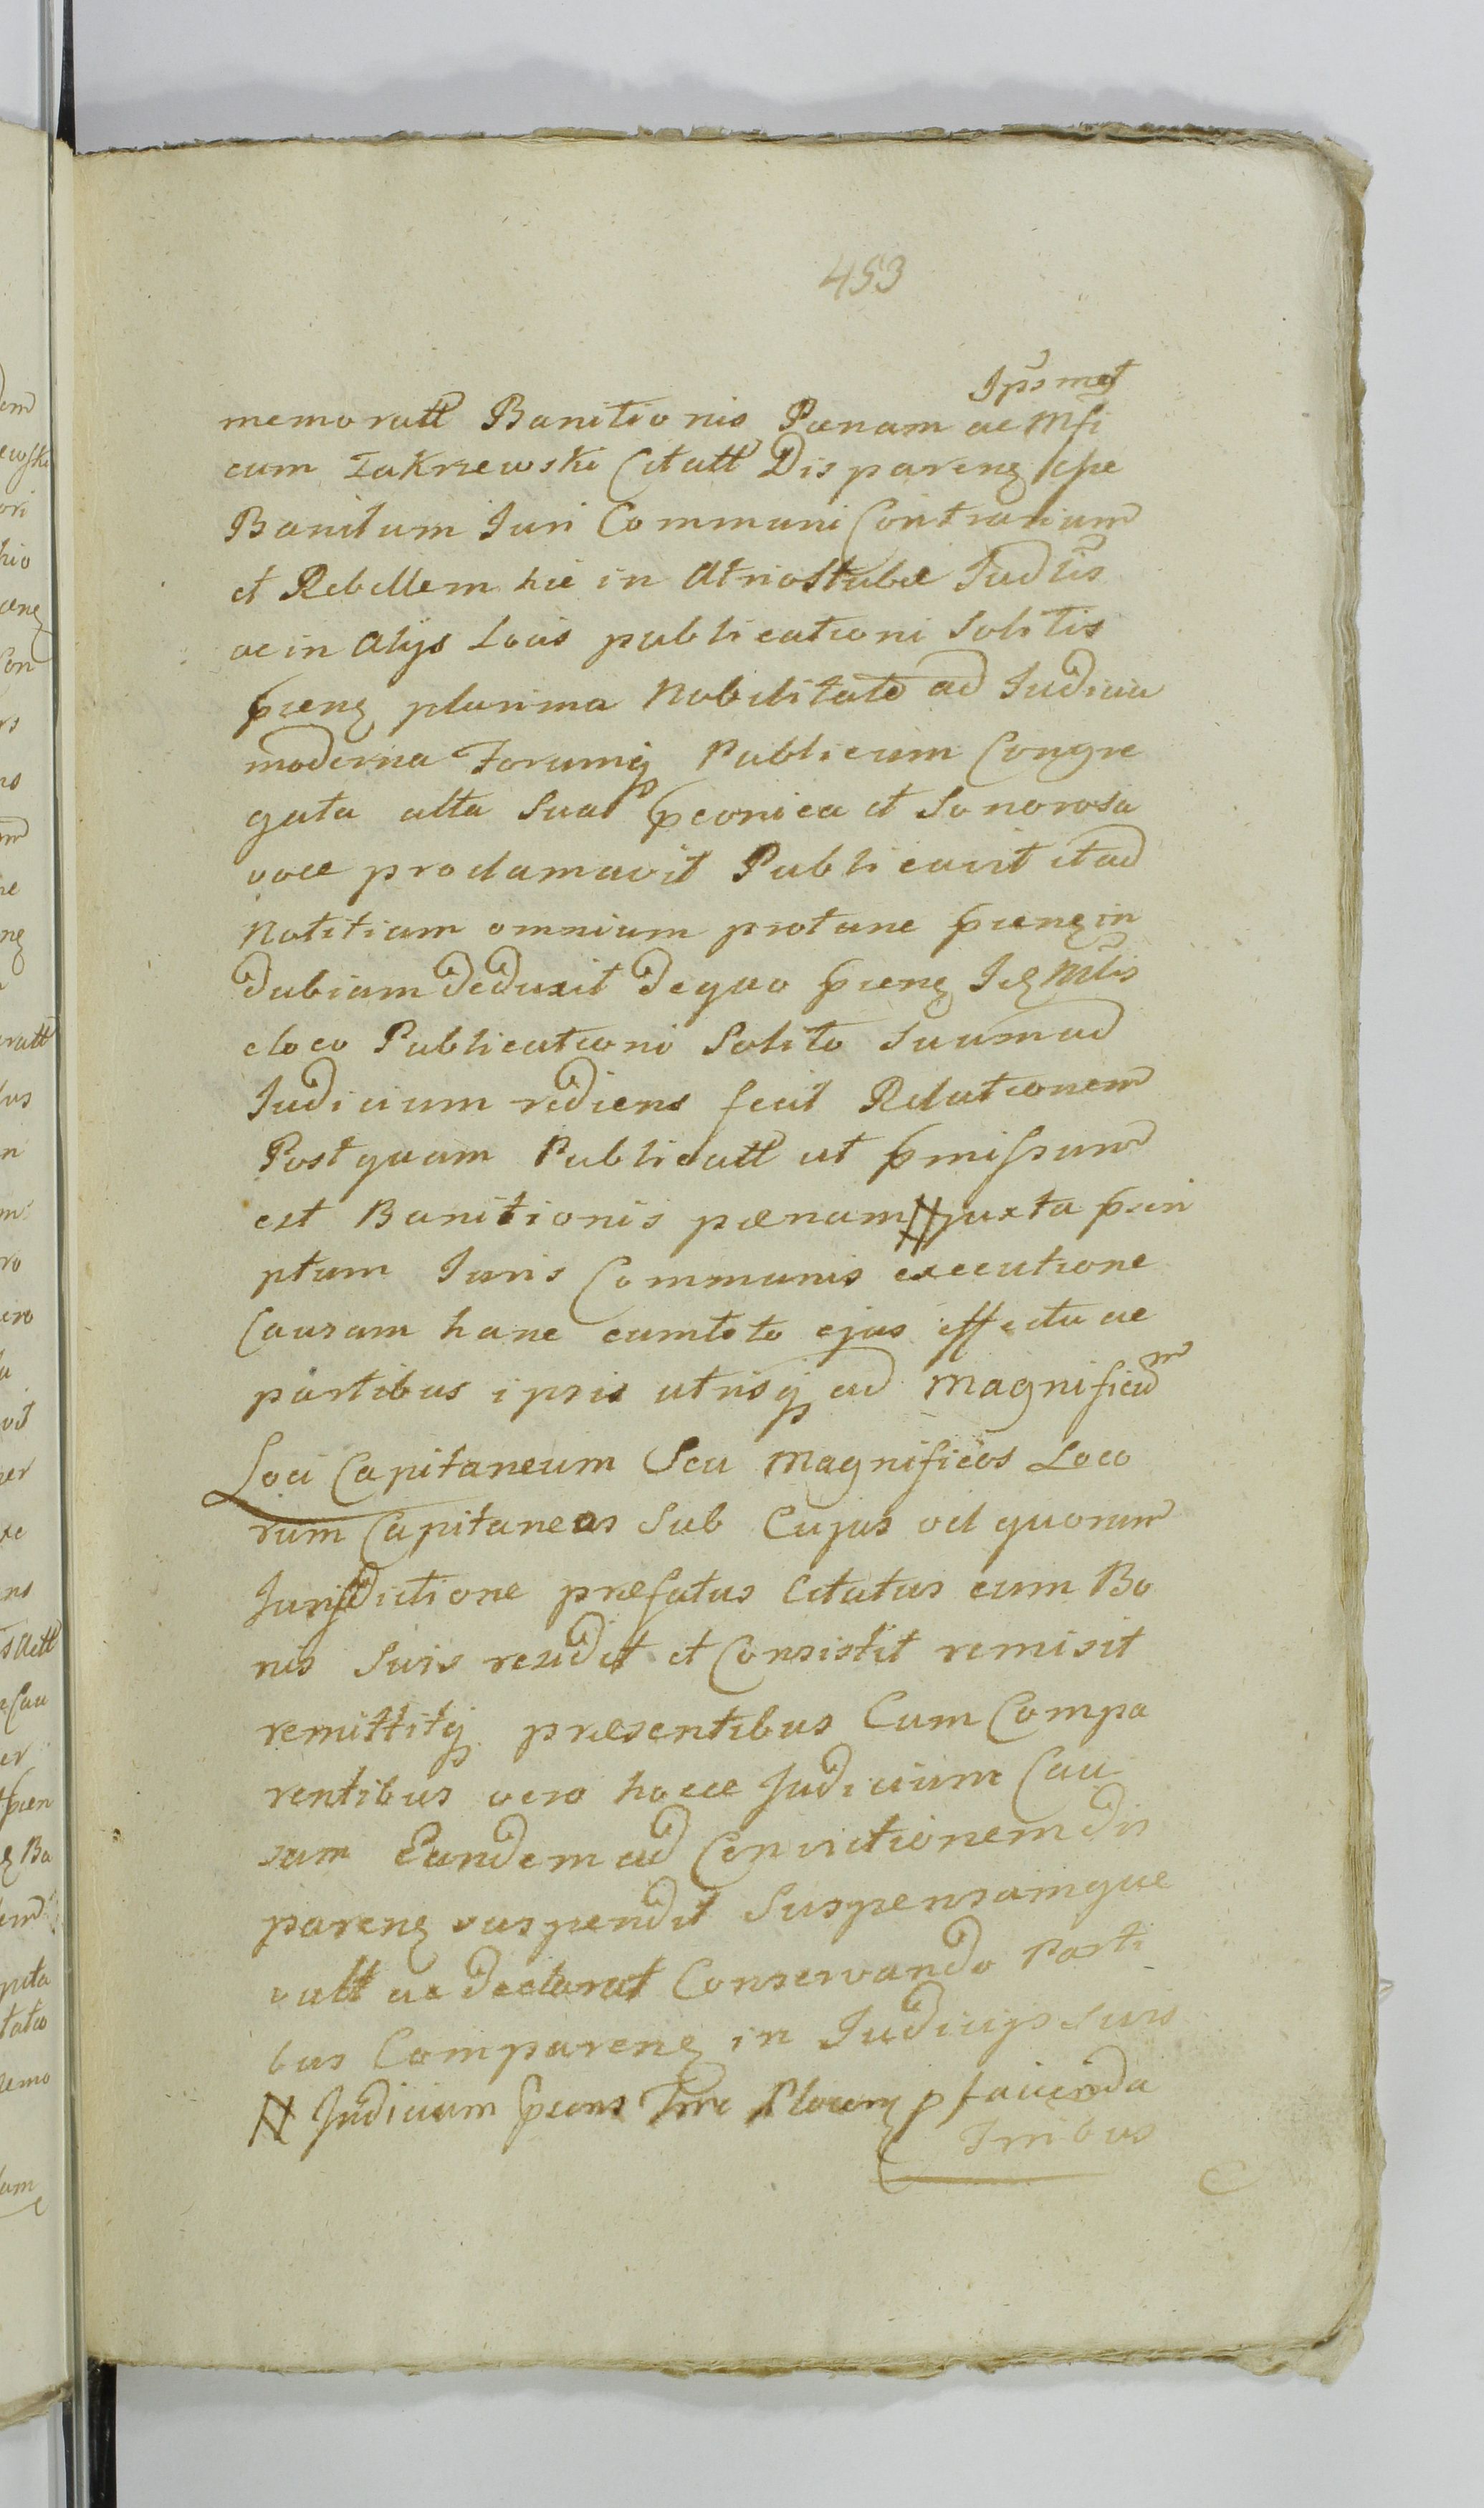 453
Ipsmet
memoratt Banitionis Pœnam ac Mfi
cum Zakrzewski Citatt Disparenz
Banitum Iuri Communi Contrarium
et Rebellem hic in Atrio Stubæ Judlis
ac in alijs Locis publicationi Solitis
pñenz plurima Nobilitate ad Iudicia
moderna Forumq Publicum Congre
gata alta Sua pconica et Sonorosa
voce proclamavit Publicavit et ad
Notitiam omnium protunc pñenz in
dubiam deduxit de quo pñenz Mlis
e loco Publicationi Solito Suum ad
Judicium rediens fecit Relationem
Postquam Publicatt ut pmissum
est Banitionis pœnam # juxta pscri
ptum Iuris Communis executione
Causam hanc cum toto ejus effectu ac
partibus ipsis utrisq ad Magnificum
Loci Capitaneum Seu Magnificos Loco
rum Capitaneos Sub Cujus vel quorum
Jurisdictione præfatus Citatus cum Bo
nis Suis residet et Consistit remisit
remittitq præsentibus Cum Compa
rentibus vero hocce Judicium Cau
sam Eandem ad Convictionem dis
parenz suspendit Suspensamque
vult ac declarat Conservando Parti
bus Comparenz in Iudicijs Suis
# Judicium pñens Trre Plocenz p facienda
Tnibus